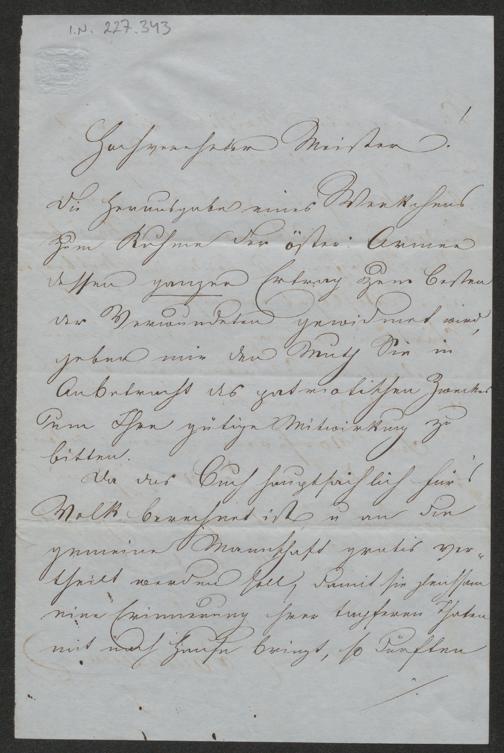 I.N. 227.343
Hochverehrter Meister!
Die Herausgabe eines Werkchens
zum Ruhme der öster: Armee
dessen ganzer Ertrag zum besten
der Verwundeten gewidmet wird,
geben mir den Muth Sie in
Anbetracht des patriotischen Zweckes
um Ihre gütige Mitwirkung zu
bitten.
Da das Buch hauptsächlich für's
Volk berechnet ist u an die
gemeine Mannschaft gratis ver-
theilt werden soll, damit sie
eine Erinnerung ihrer tapferen Thaten
mit nach Hause bringt, so dürften